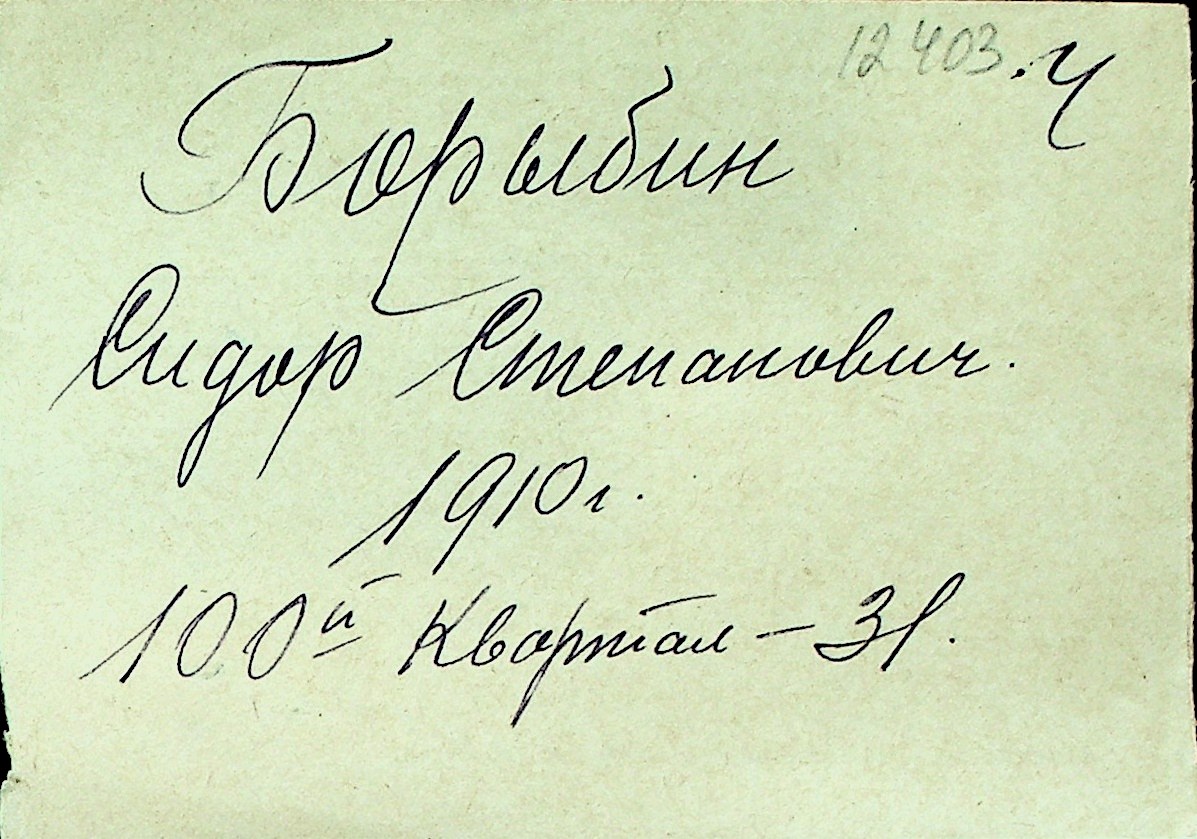 12403. Ч
Борыбин
Сидор Степанович.
1910 г.
100й Квартал – 31.